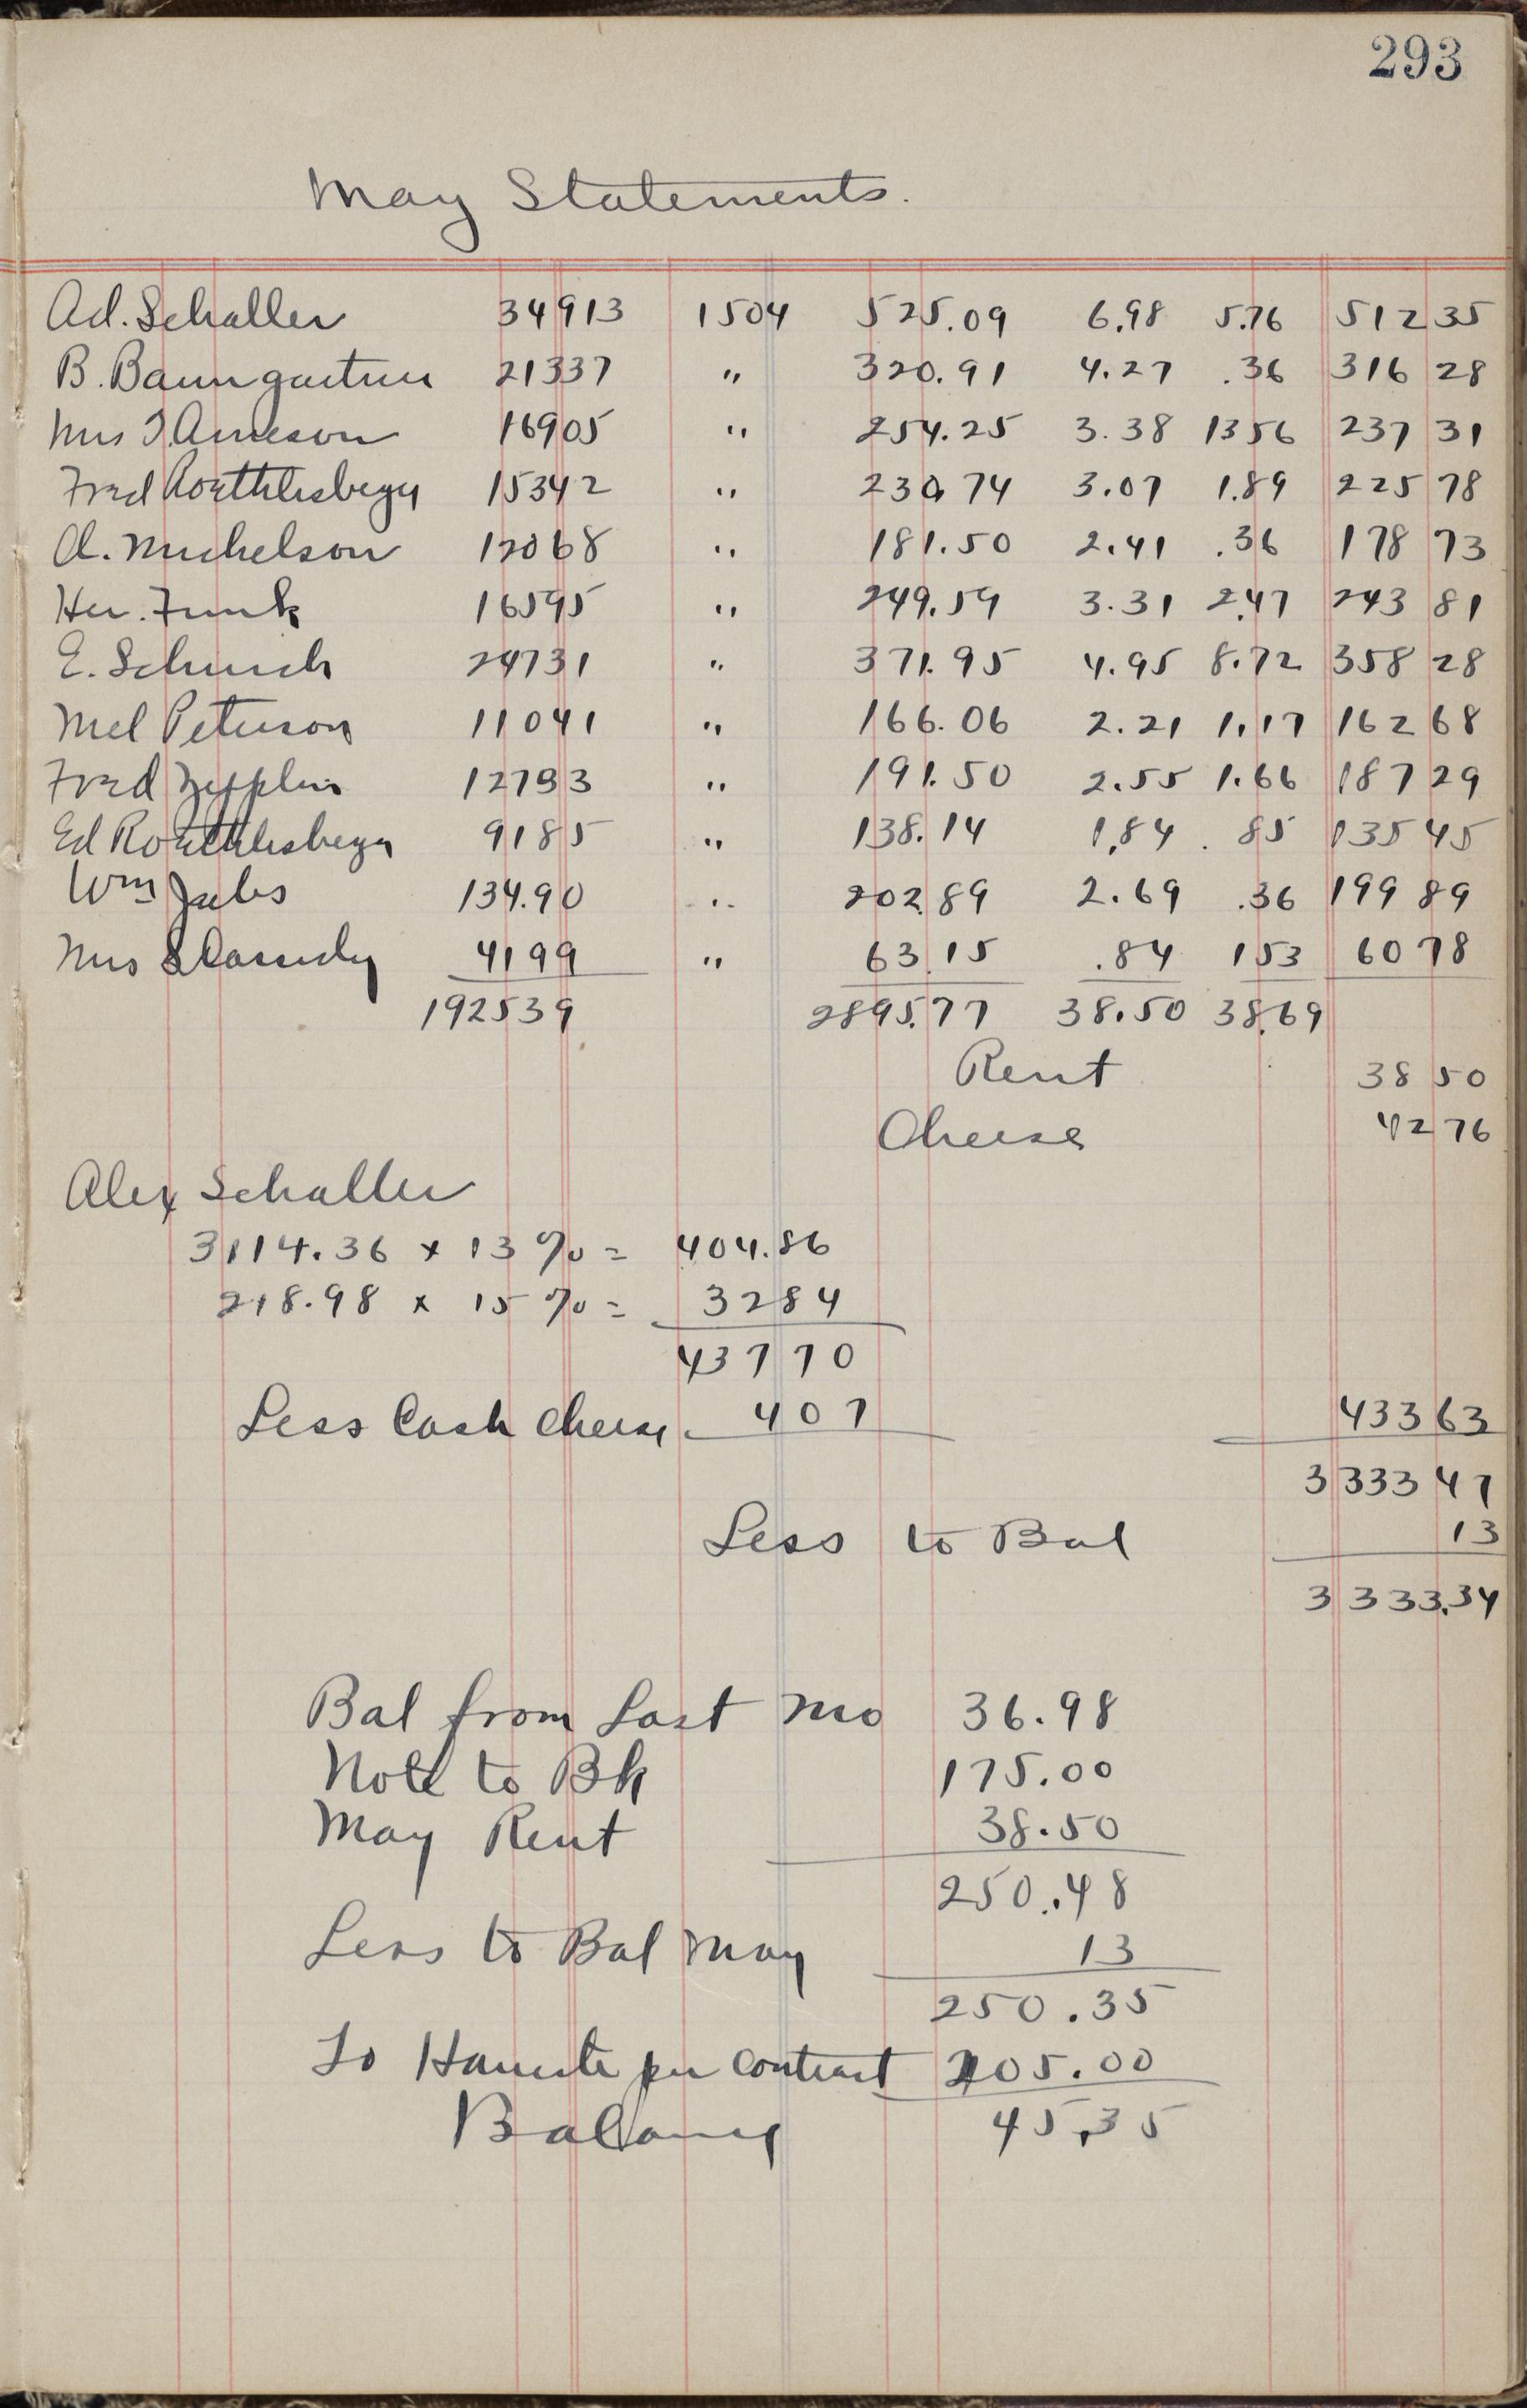 293
May Statements.
Ad. Schaller 34913 1504 525.09 6.98 5.76 512 35
B. Baumgartner 21337 " 320.91 4.27 .36 316 28
Mrs T. Arneson 16905 " 254.25 3.38 1356 237 31
Fred Roethlisberger 15342 " 230.74 3.07 1.89 225 78
A. Michelson 12068 " 181.50 2.41 .36 178 73
Her. Funk 16595 " 249.59 3.31 2.47 243 81
E. Schurch 24731 " 371.95 4.95 8.72 358 28
Mel Peterson 11041 " 166.06 2.21 1.17 162 68
Fred Zepplin 12733 " 191.50 2.55 1.66 187 29
Ed Roethlisberger 9185 " 138.14 1.84 .85 135 45
Wm Jabs 134.90 " 202.89 2.69 .36 199 89
Mrs S Cassidy 4199 " 63.15 .84 153 60 78
192539 2895.77 38.50 38.69
Rent 38 50
Cheese 42 76
Alex Schaller
3114.36 x 13 % = 404.86
218.98 x 15 % = 3284
43770
Less Cash Cheese 407 433 63
3333 47
Less to Bal 13
3333.34
Bal from Last Mo 36.98
Note to Bk 175.00
May Rent 38.50
250.48
Less to Bal May 13
250.35
To per contract 205.00
Balance 45.35